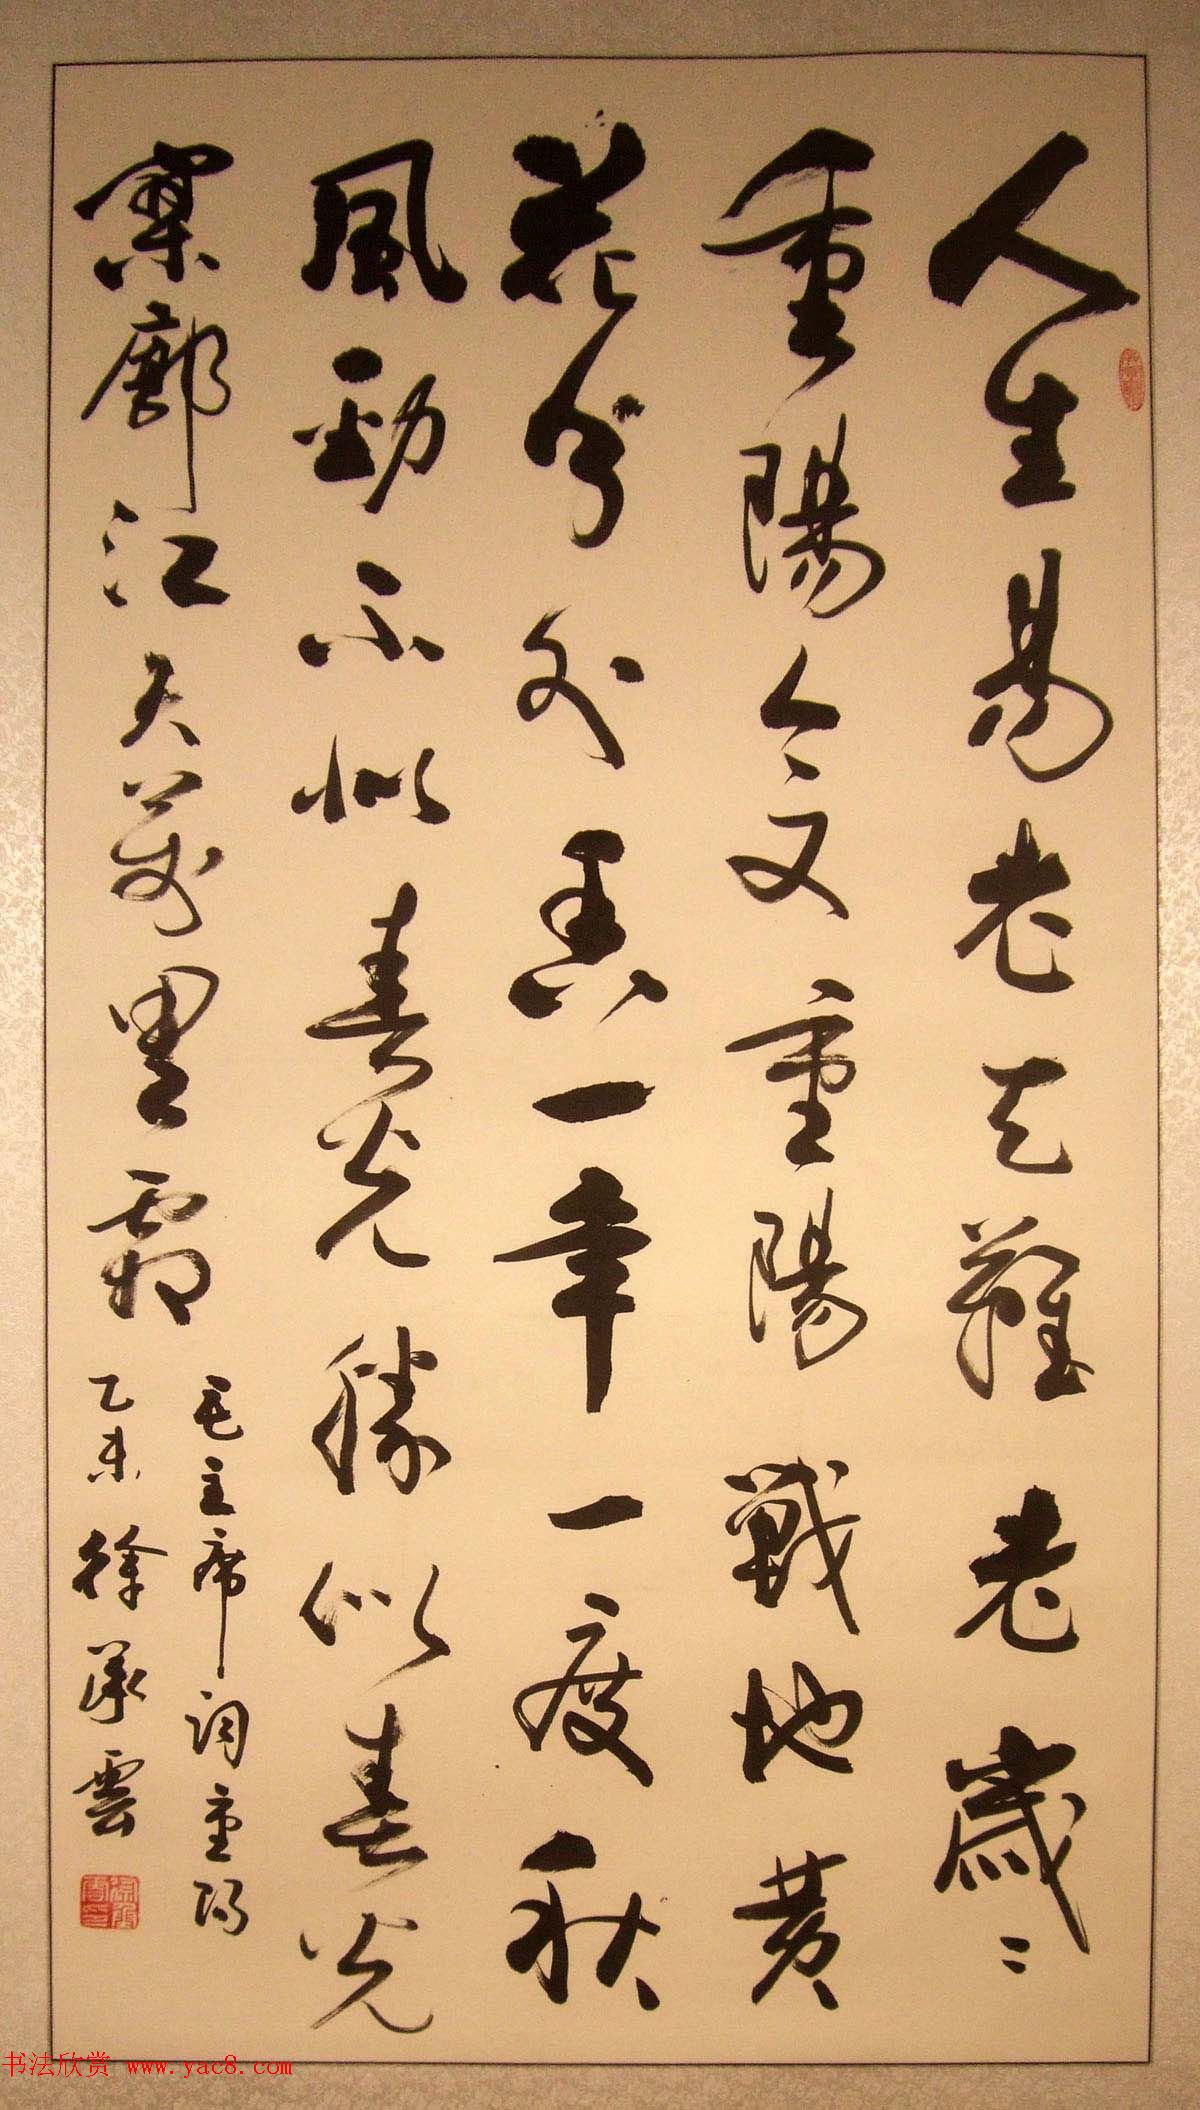 人生易老天難老歲〻
重陽今又重陽戰地黄
花分外香一年一度秋
風勁不似春光勝似春光
寥廓江天萬里霜
毛主席詞重陽
乙未徐承雲
书法欣赏 www.yac8.com